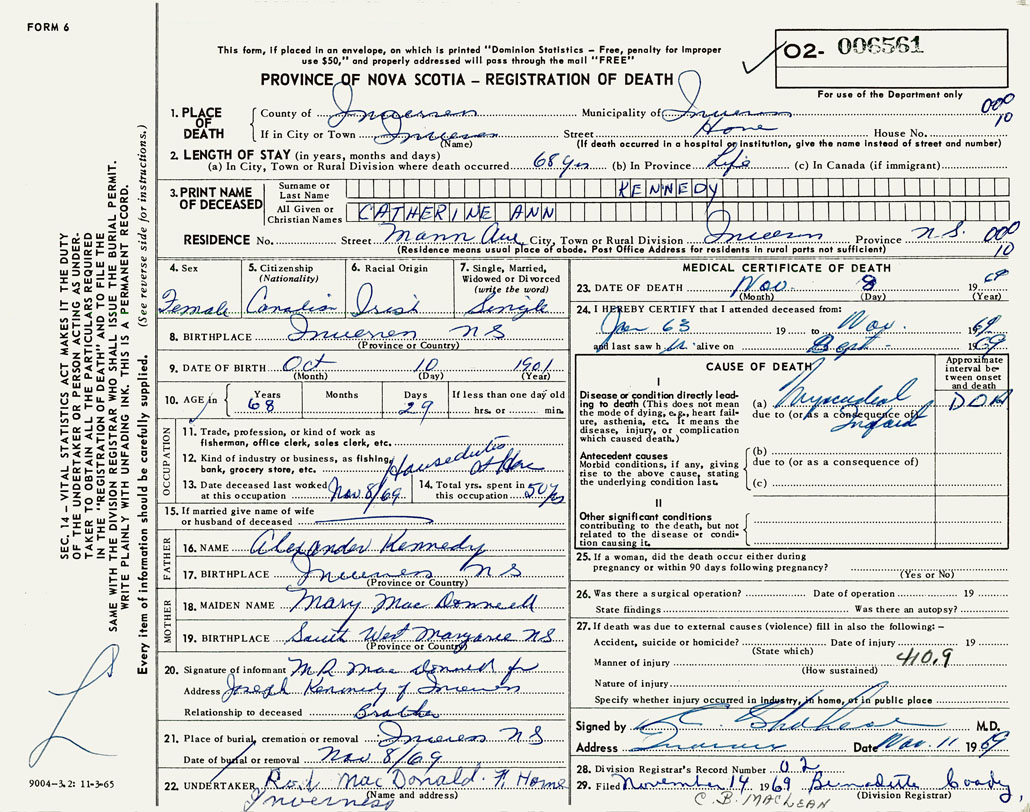 FORM 6
This form, if placed in an envelope, on which is printed "Dominion Statistics – Free, penalty for improper
use $50," and properly addressed will pass through the mail "FREE"
PROVINCE OF NOVA SCOTIA – REGISTRATION OF DEATH
02- 006561
For use of the Department only
SEC. 14 – VITAL STATISTICS ACT MAKES IT THE DUTY
OF THE UNDERTAKER OR PERSON ACTING AS UNDER-
TAKER TO OBTAIN ALL THE PARTICULARS REQUIRED
IN THE "REGISTRATION OF DEATH" AND TO FILE THE
SAME WITH THE DIVISION REGISTRAR WHO SHALL ISSUE THE BURIAL PERMIT.
WRITE PLAINLY WITH UNFADING INK. THIS IS A PERMANENT RECORD.
Every item of information should be carefully supplied. (See reverse side for instructions.)
1. PLACE OF DEATH
County of Inverness Municipality of Inverness 000 10
If in City or Town Inverness Street Home House No.
(Name) (If death occurred in a hospital or institution, give the name instead of street and number)
2. LENGTH OF STAY (in years, months and days)
(a) In City, Town or Rural Division where death occurred 68 yrs (b) In Province Life (c) In Canada (if immigrant)
3. PRINT NAME OF DECEASED
Surname or Last Name KENNEDY
All Given or Christian Names CATHERINE ANN
RESIDENCE No. Street Mann Ave City, Town or Rural Division Inverness Province N.S. 000 10
(Residence means usual place of abode. Post Office Address for residents in rural parts not sufficient)
4. Sex Female
5. Citizenship (Nationality) Canadian
6. Racial Origin Irish
7. Single, Married, Widowed or Divorced (write the word) Single
8. BIRTHPLACE Inverness NS
(Province or Country)
9. DATE OF BIRTH Oct 10 1901
(Month) (Day) (Year)
10. AGE in Years 68 Months Days 29 If less than one day old hrs. or min.
OCCUPATION
11. Trade, profession, or kind of work as
fisherman, office clerk, sales clerk, etc.
12. Kind of industry or business, as fishing,
bank, grocery store, etc. Houseduties at Home
13. Date deceased last worked at this occupation Nov. 8/69 14. Total yrs. spent in this occupation 50 yrs
15. If married give name of wife
or husband of deceased
FATHER
16. NAME Alexander Kennedy
17. BIRTHPLACE Inverness NS
(Province or Country)
MOTHER
18. MAIDEN NAME Mary MacDonnell
19. BIRTHPLACE South West Margaree NS
(Province or Country)
20. Signature of informant
Address Joseph Kennedy of Inverness
Relationship to deceased Brother
21. Place of burial, cremation or removal Inverness NS
Date of burial or removal Nov 8/69
22. UNDERTAKER MacDonald F Home
Inverness (Name and address)
9004-3.2: 11-3-65
MEDICAL CERTIFICATE OF DEATH
23. DATE OF DEATH Nov. 8 19 69
(Month) (Day) (Year)
24. I HEREBY CERTIFY that I attended deceased from:
Jan 63 19 to Nov. 19 69
and last saw h alive on Sept - 19 69
CAUSE OF DEATH
Approximate interval between onset and death
I
Disease or condition directly lead-
ing to death (This does not mean
the mode of dying, e.g., heart fail-
ure, asthenia, etc. It means the
disease, injury, or complication
which caused death.)
(a) Myocardial DOA
due to (or as a consequence of)
Infarct
Antecedent causes
Morbid conditions, if any, giving
rise to the above cause, stating
the underlying condition last.
(b)
due to (or as a consequence of)
(c)
II
Other significant conditions
contributing to the death, but not
related to the disease or condi-
tion causing it.
25. If a woman, did the death occur either during
pregnancy or within 90 days following pregnancy?
(Yes or No)
26. Was there a surgical operation? Date of operation 19
State findings Was there an autopsy?
27. If death was due to external causes (violence) fill in also the following: –
Accident, suicide or homicide? Date of injury 19
(State which)
Manner of injury 410.9
(How sustained)
Nature of injury
Specify whether injury occurred in industry, in home, or in public place
Signed by M.D.
Address Inverness Date Nov. 11 1969
28. Division Registrar's Record Number 02
29. Filed November 14 1969 Bernadette Coady
C. B. MACLEAN (Division Registrar)